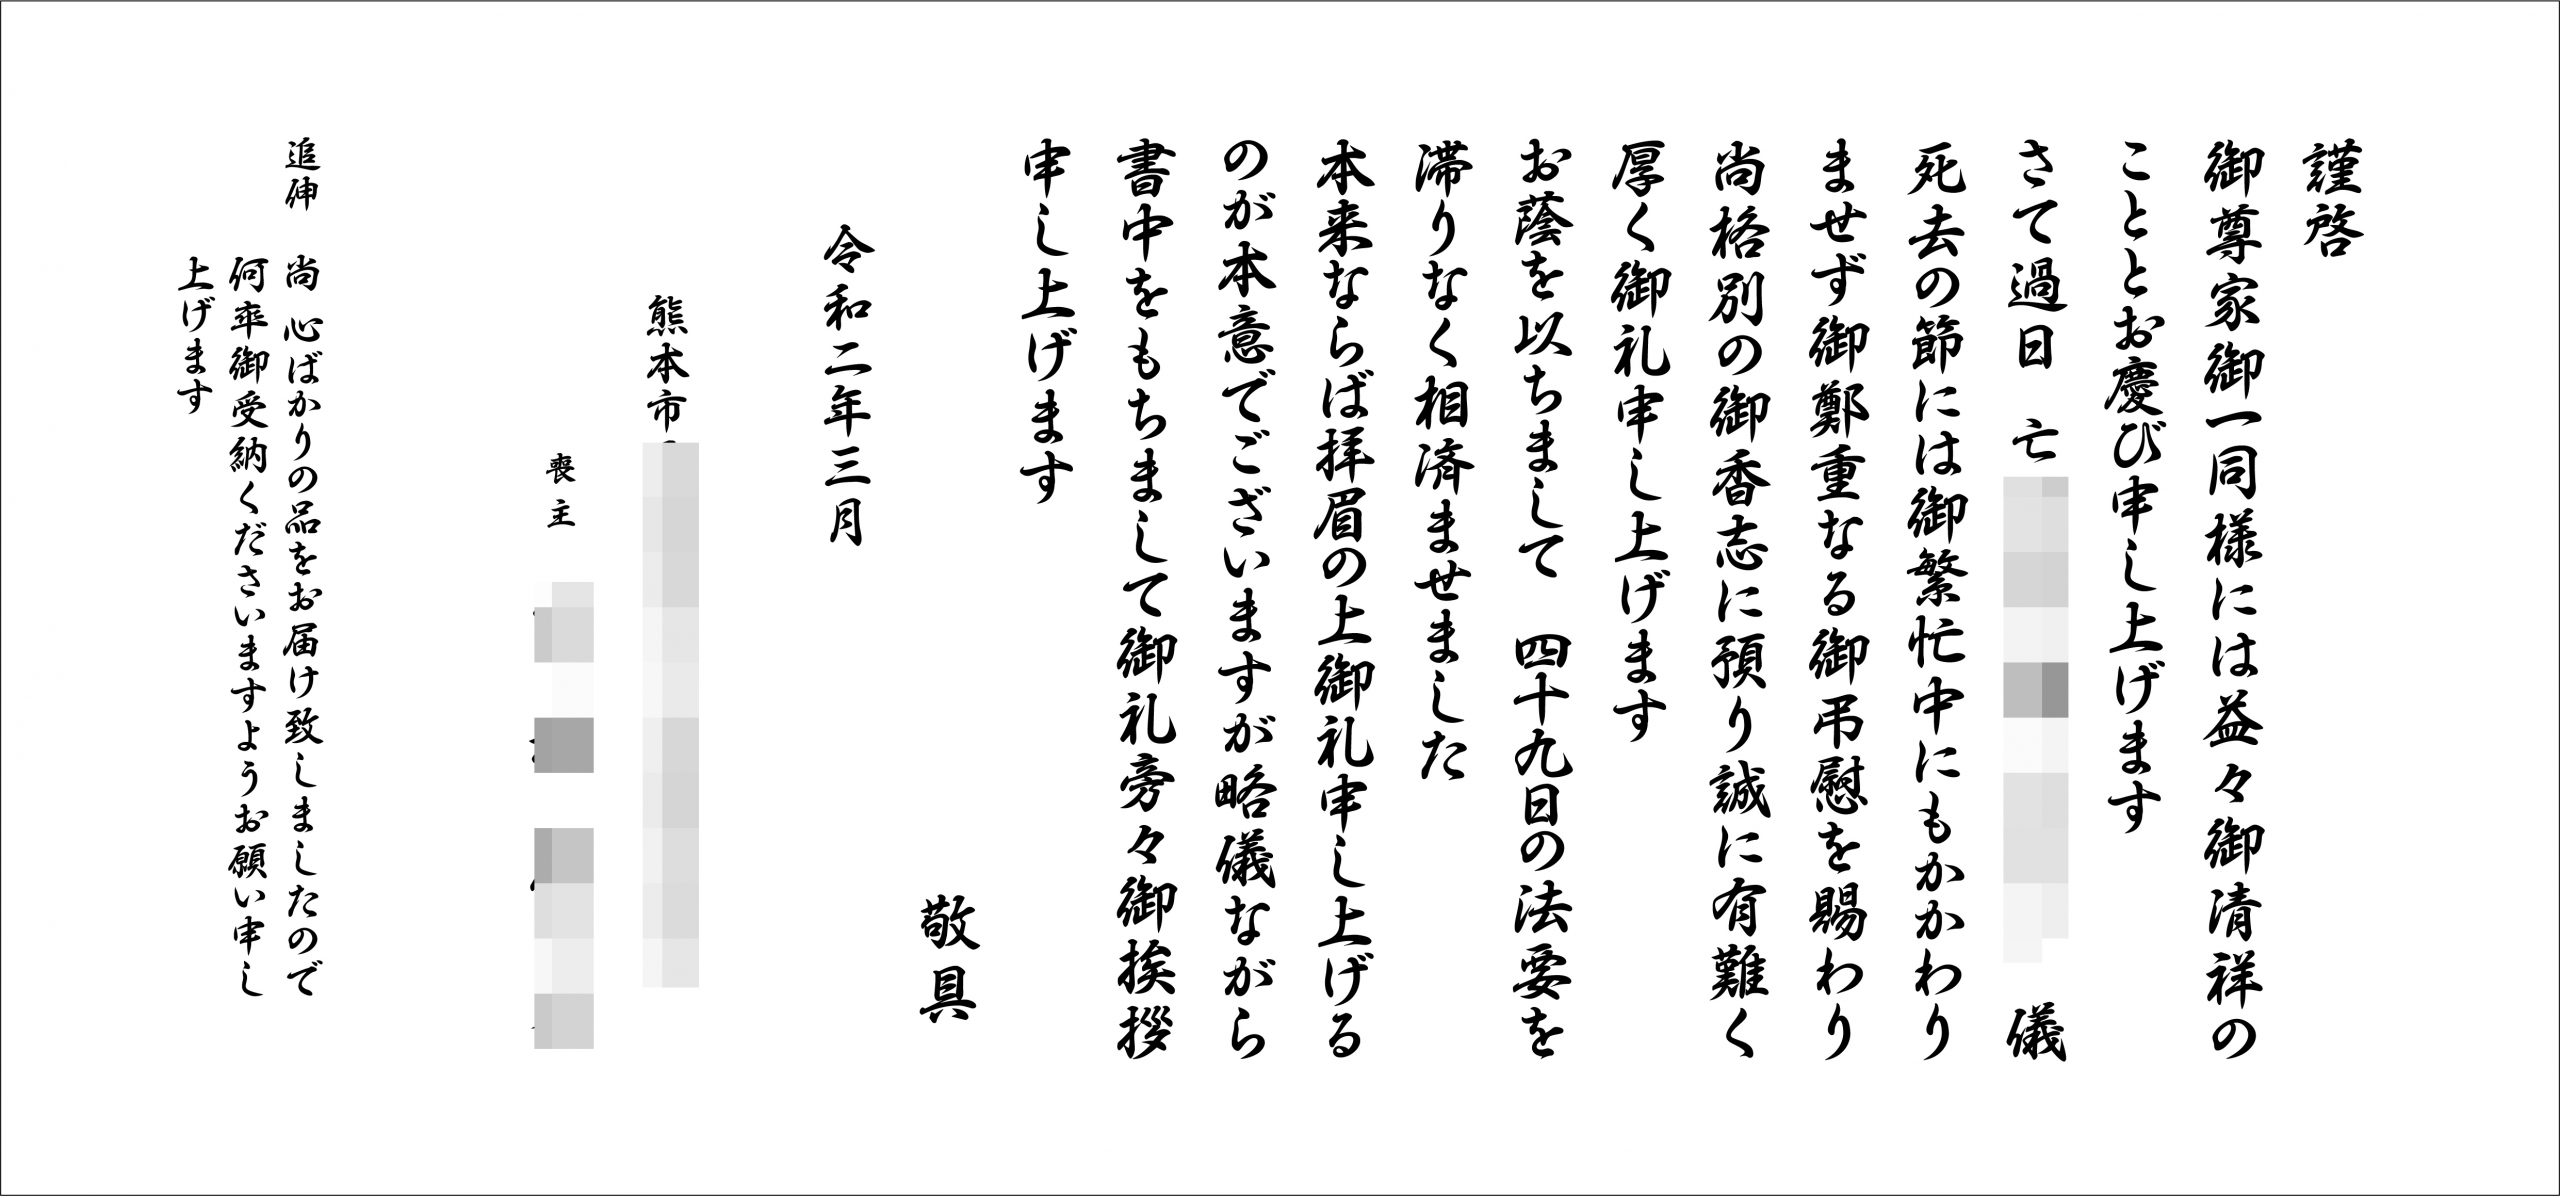 謹啓
御尊家御一同様には益々御清祥の
こととお慶び申し上げます
さて過日　亡　儀
死去の節には御繁忙中にもかかわり
ませず御鄭重なる御弔慰を賜わり
尚格別の御香志に預り誠に有難く
厚く御礼申し上げます
お蔭を以ちまして　四十九日の法要を
滞りなく相済ませました
本来ならば拝眉の上御礼申し上げる
のが本意でございますが略儀ながら
書中をもちまして御礼旁々御挨拶
申し上げます
敬具
令和二年三月
熊本市
喪主
追伸　尚 心ばかりの品をお届け致しましたので
何卒御受納くださいますようお願い申し
上げます